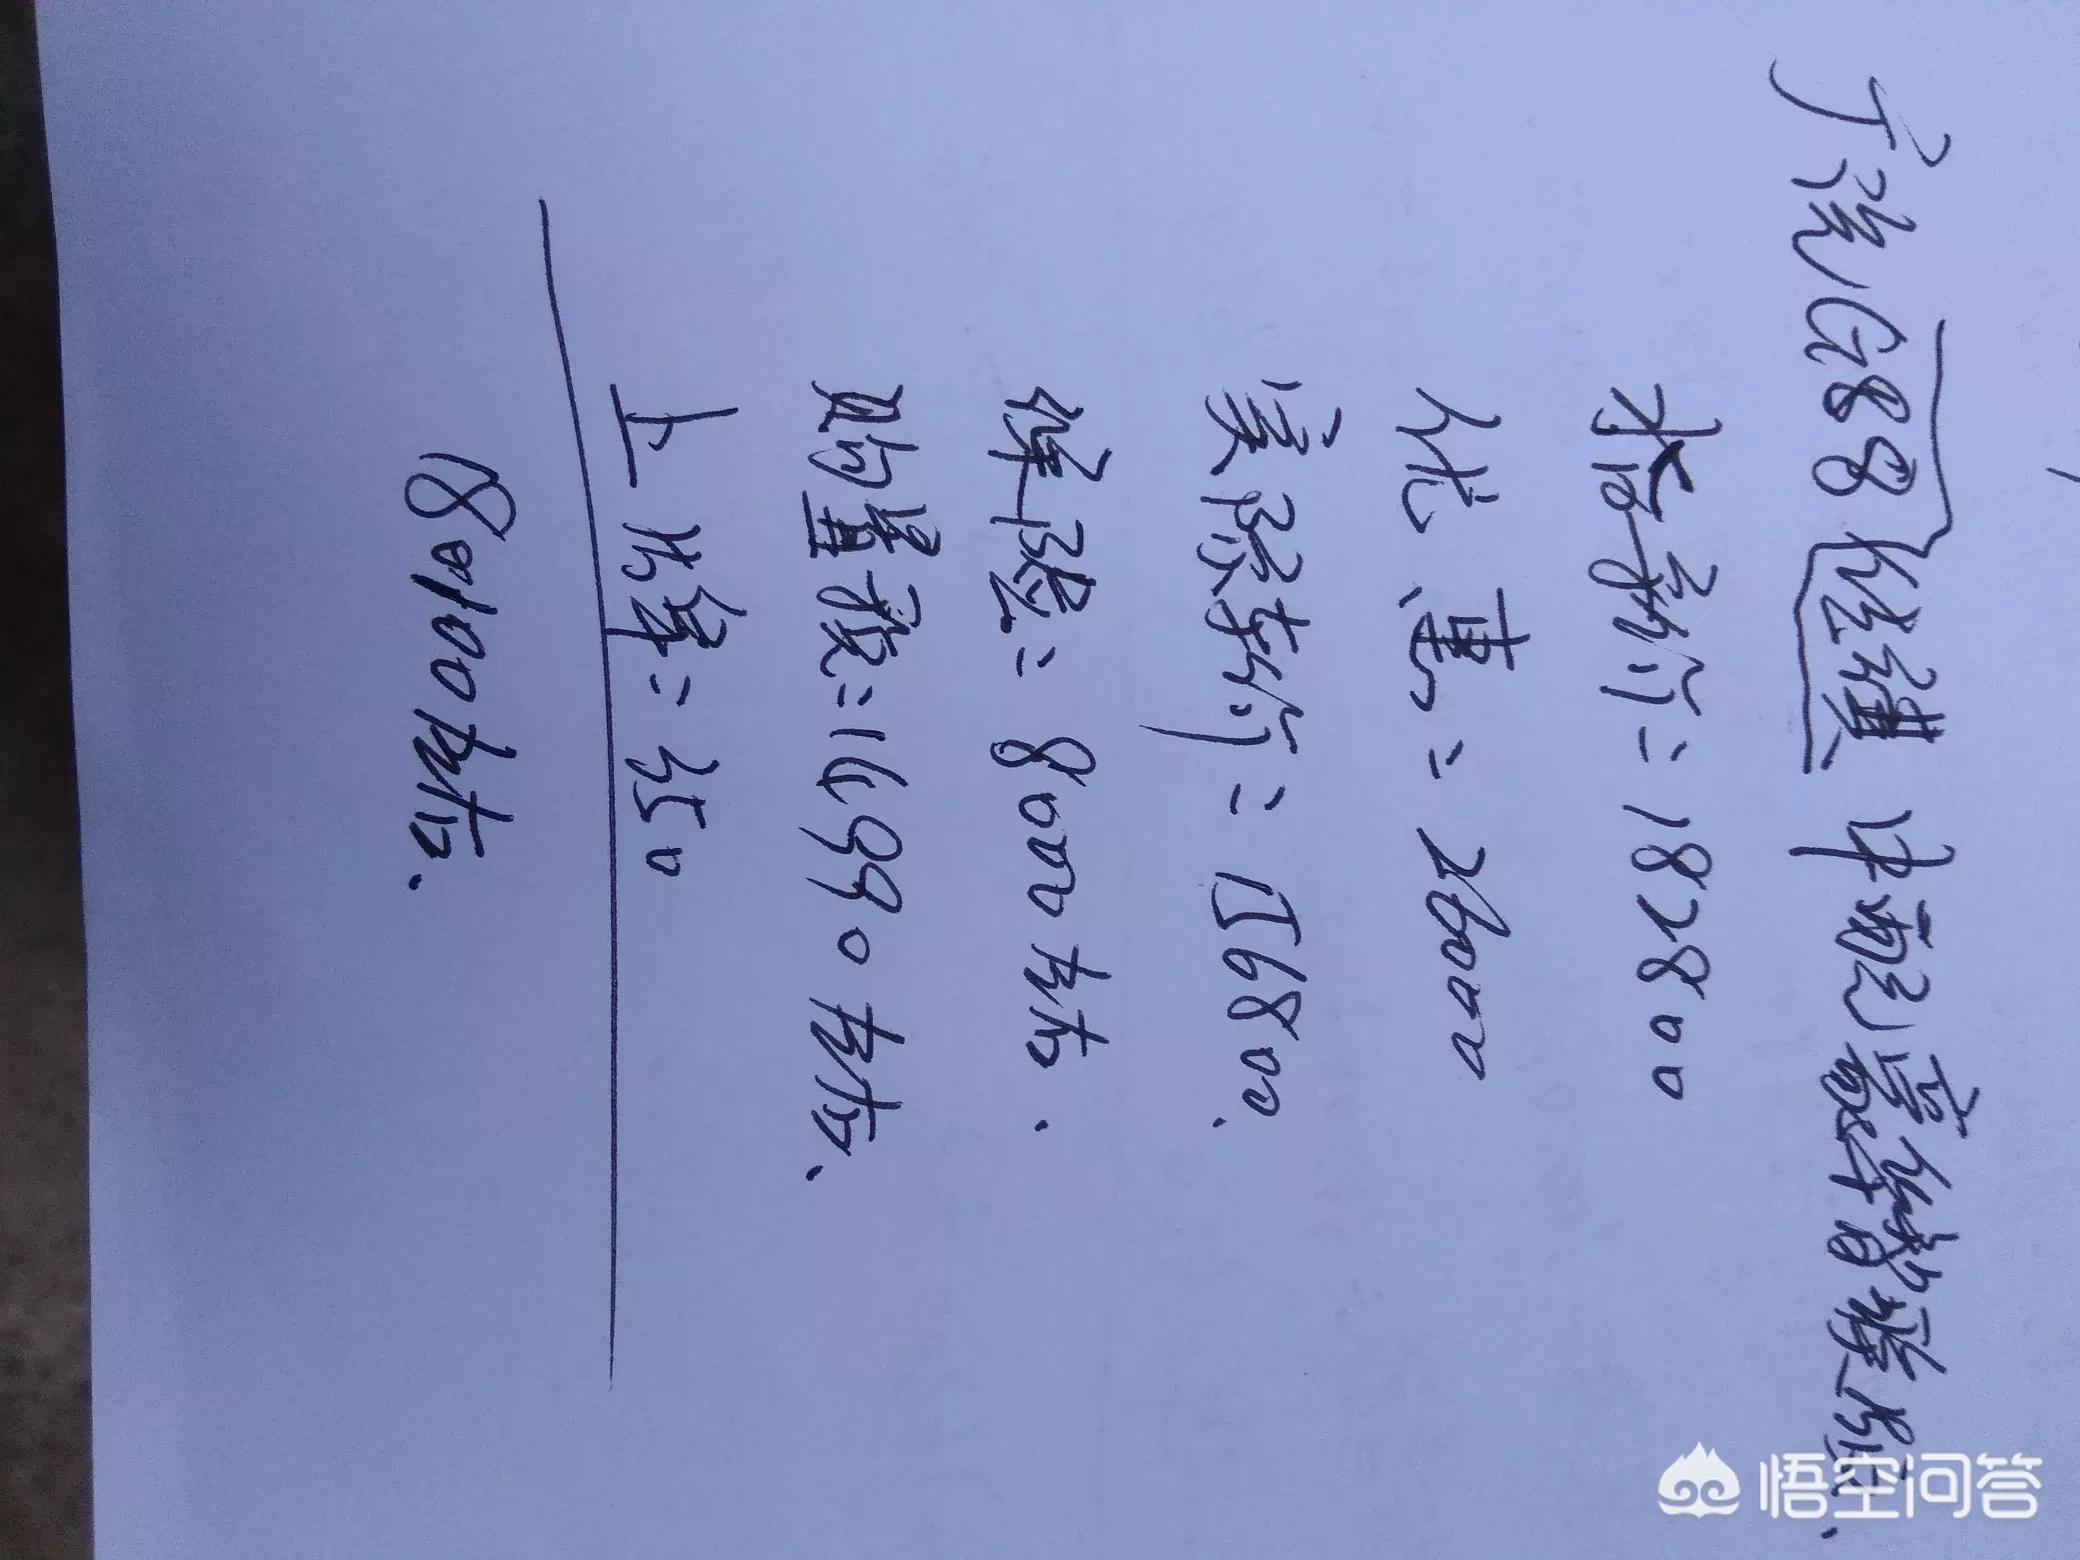 广汽GS8 住進 中配豪华智联版.
指导价=182800
优惠=26000
实际车价=156800.
保险=8000左右.
购置税=16990左右.
上牌=350
180100左右.
悟空问答